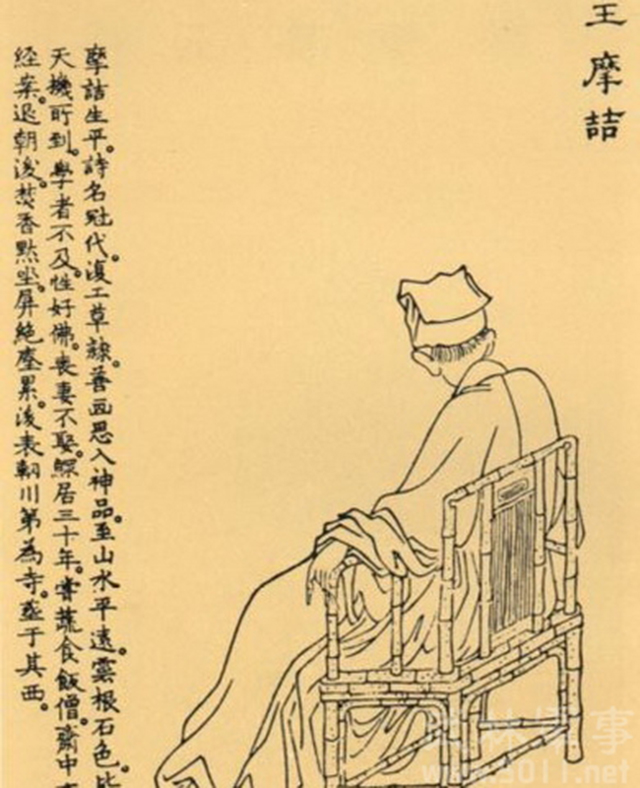 王摩詰
摩詰生平。詩名冠代。復工草隸。善画思入神品。至山水平遠。雲根石色。皆
天機所到。學者不及。性好佛。喪妻不娶。鰥居三十年。嘗蔬食飯僧。齋中
經案。退朝後。焚香默坐。屏絶塵累。後表輞川第為寺。葬于其西。